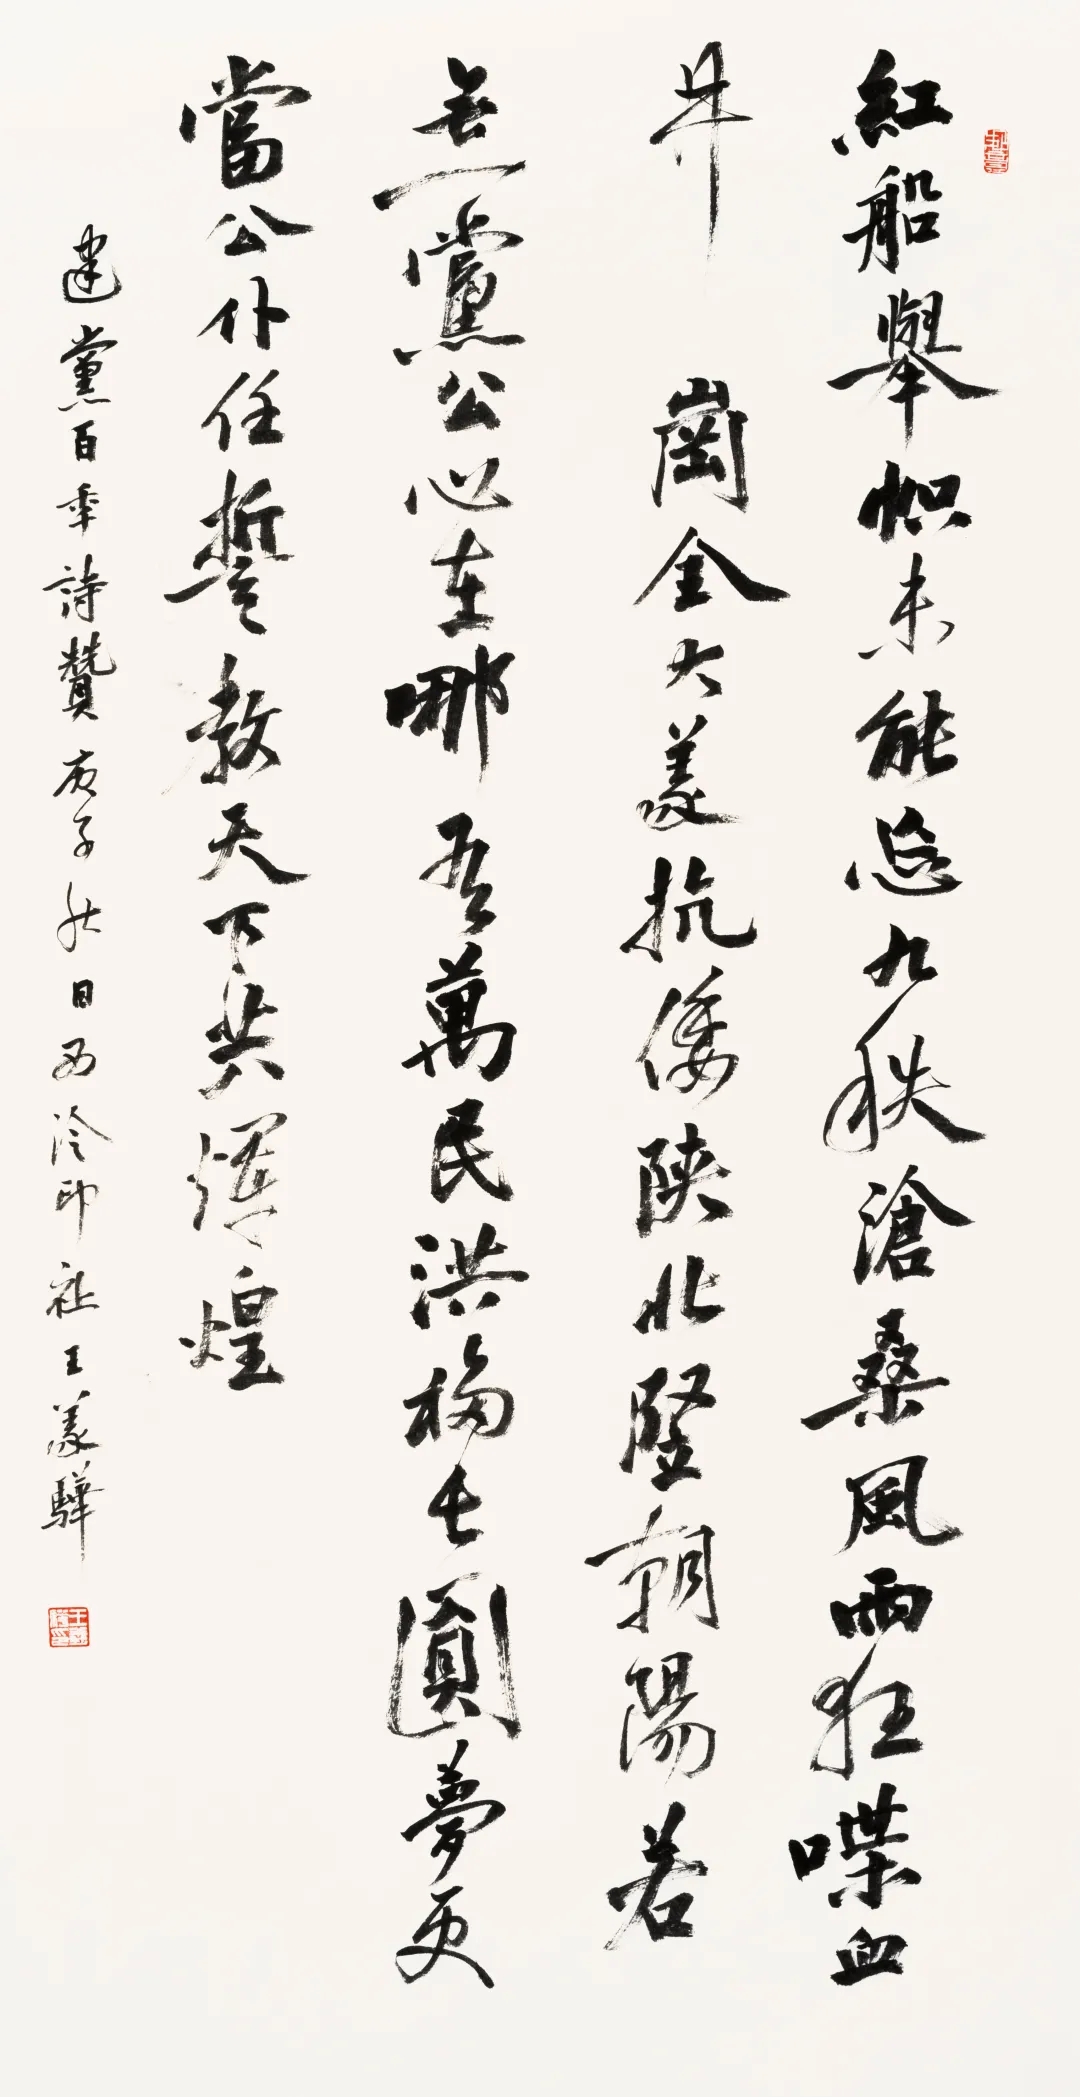 紅船舉幟未能忘九秩滄桑風雨狂喋血
井崗全大義抗倭陝北豎朝陽若
無黨公心在哪吾萬民洪福長圓夢更
當公仆任誓教天下共煇煌
建黨百年詩贊庚子秋日西泠印社王義驊